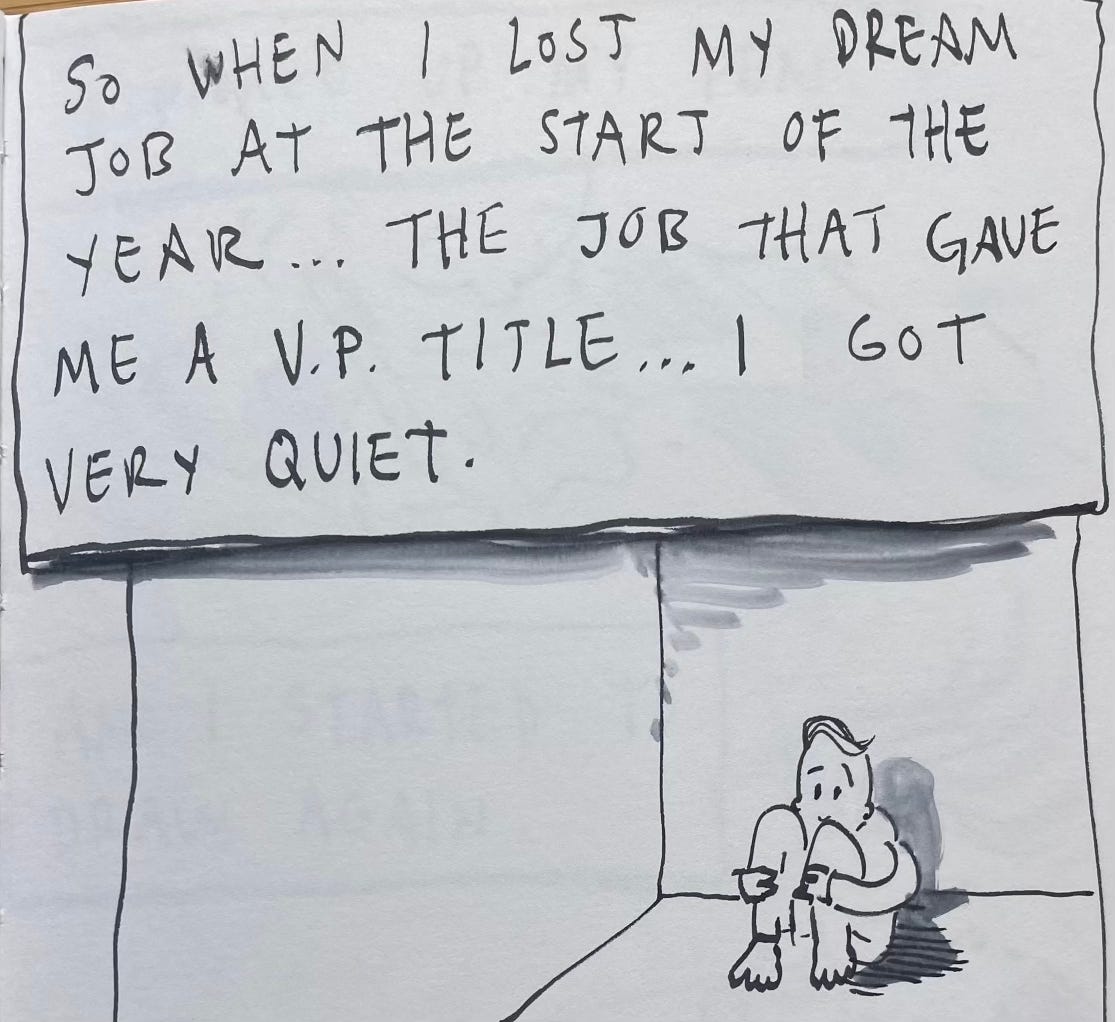 SO WHEN I LOST MY DREAM
JOB AT THE START OF THE
YEAR... THE JOB THAT GAVE
ME A V.P. TITLE... I GOT
VERY QUIET.